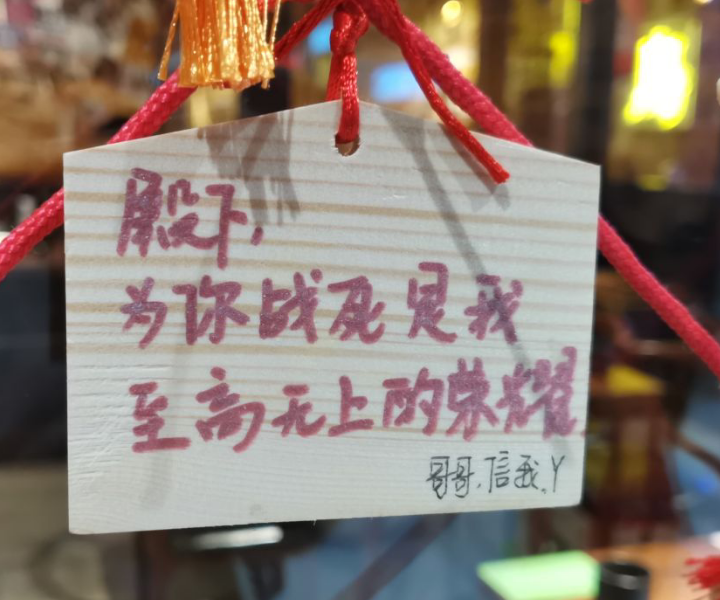 殿下,
为你战死是我
至高无上的荣耀.
哥哥.信我.Y